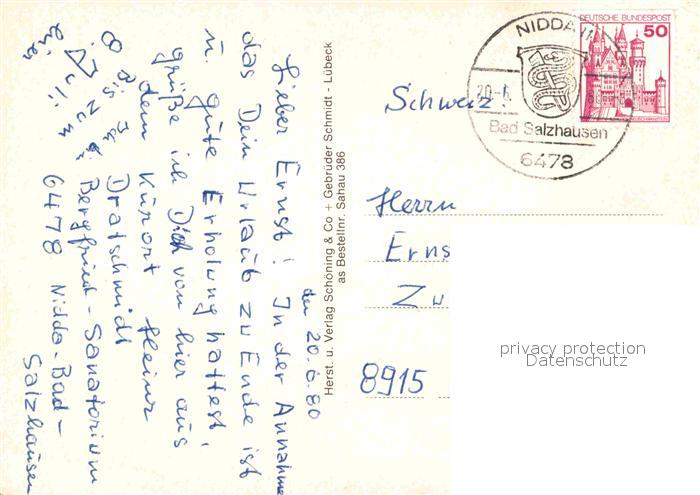 den 20.6.80
Lieber Ernst! In der Annahme
das Dein Urlaub zu Ende ist
u. gute Erholung hattest,
grüße ich Dich von hier aus
dem Kurort Heinz
Dratschmidt
Bergfried-Sanatorium
6478 Nidda-Bad-
Salzhausen
Bis zum
Juli
Herst. u. Verlag Schöning & Co + Gebrüder Schmidt - Lübeck
as Bestellnr. Sahau 386
NIDDA
20.-6.
Bad Salzhausen
6478
DEUTSCHE BUNDESPOST
50
Schweiz!
Herrn
Erns
Zu
8915
privacy protection
Datenschutz